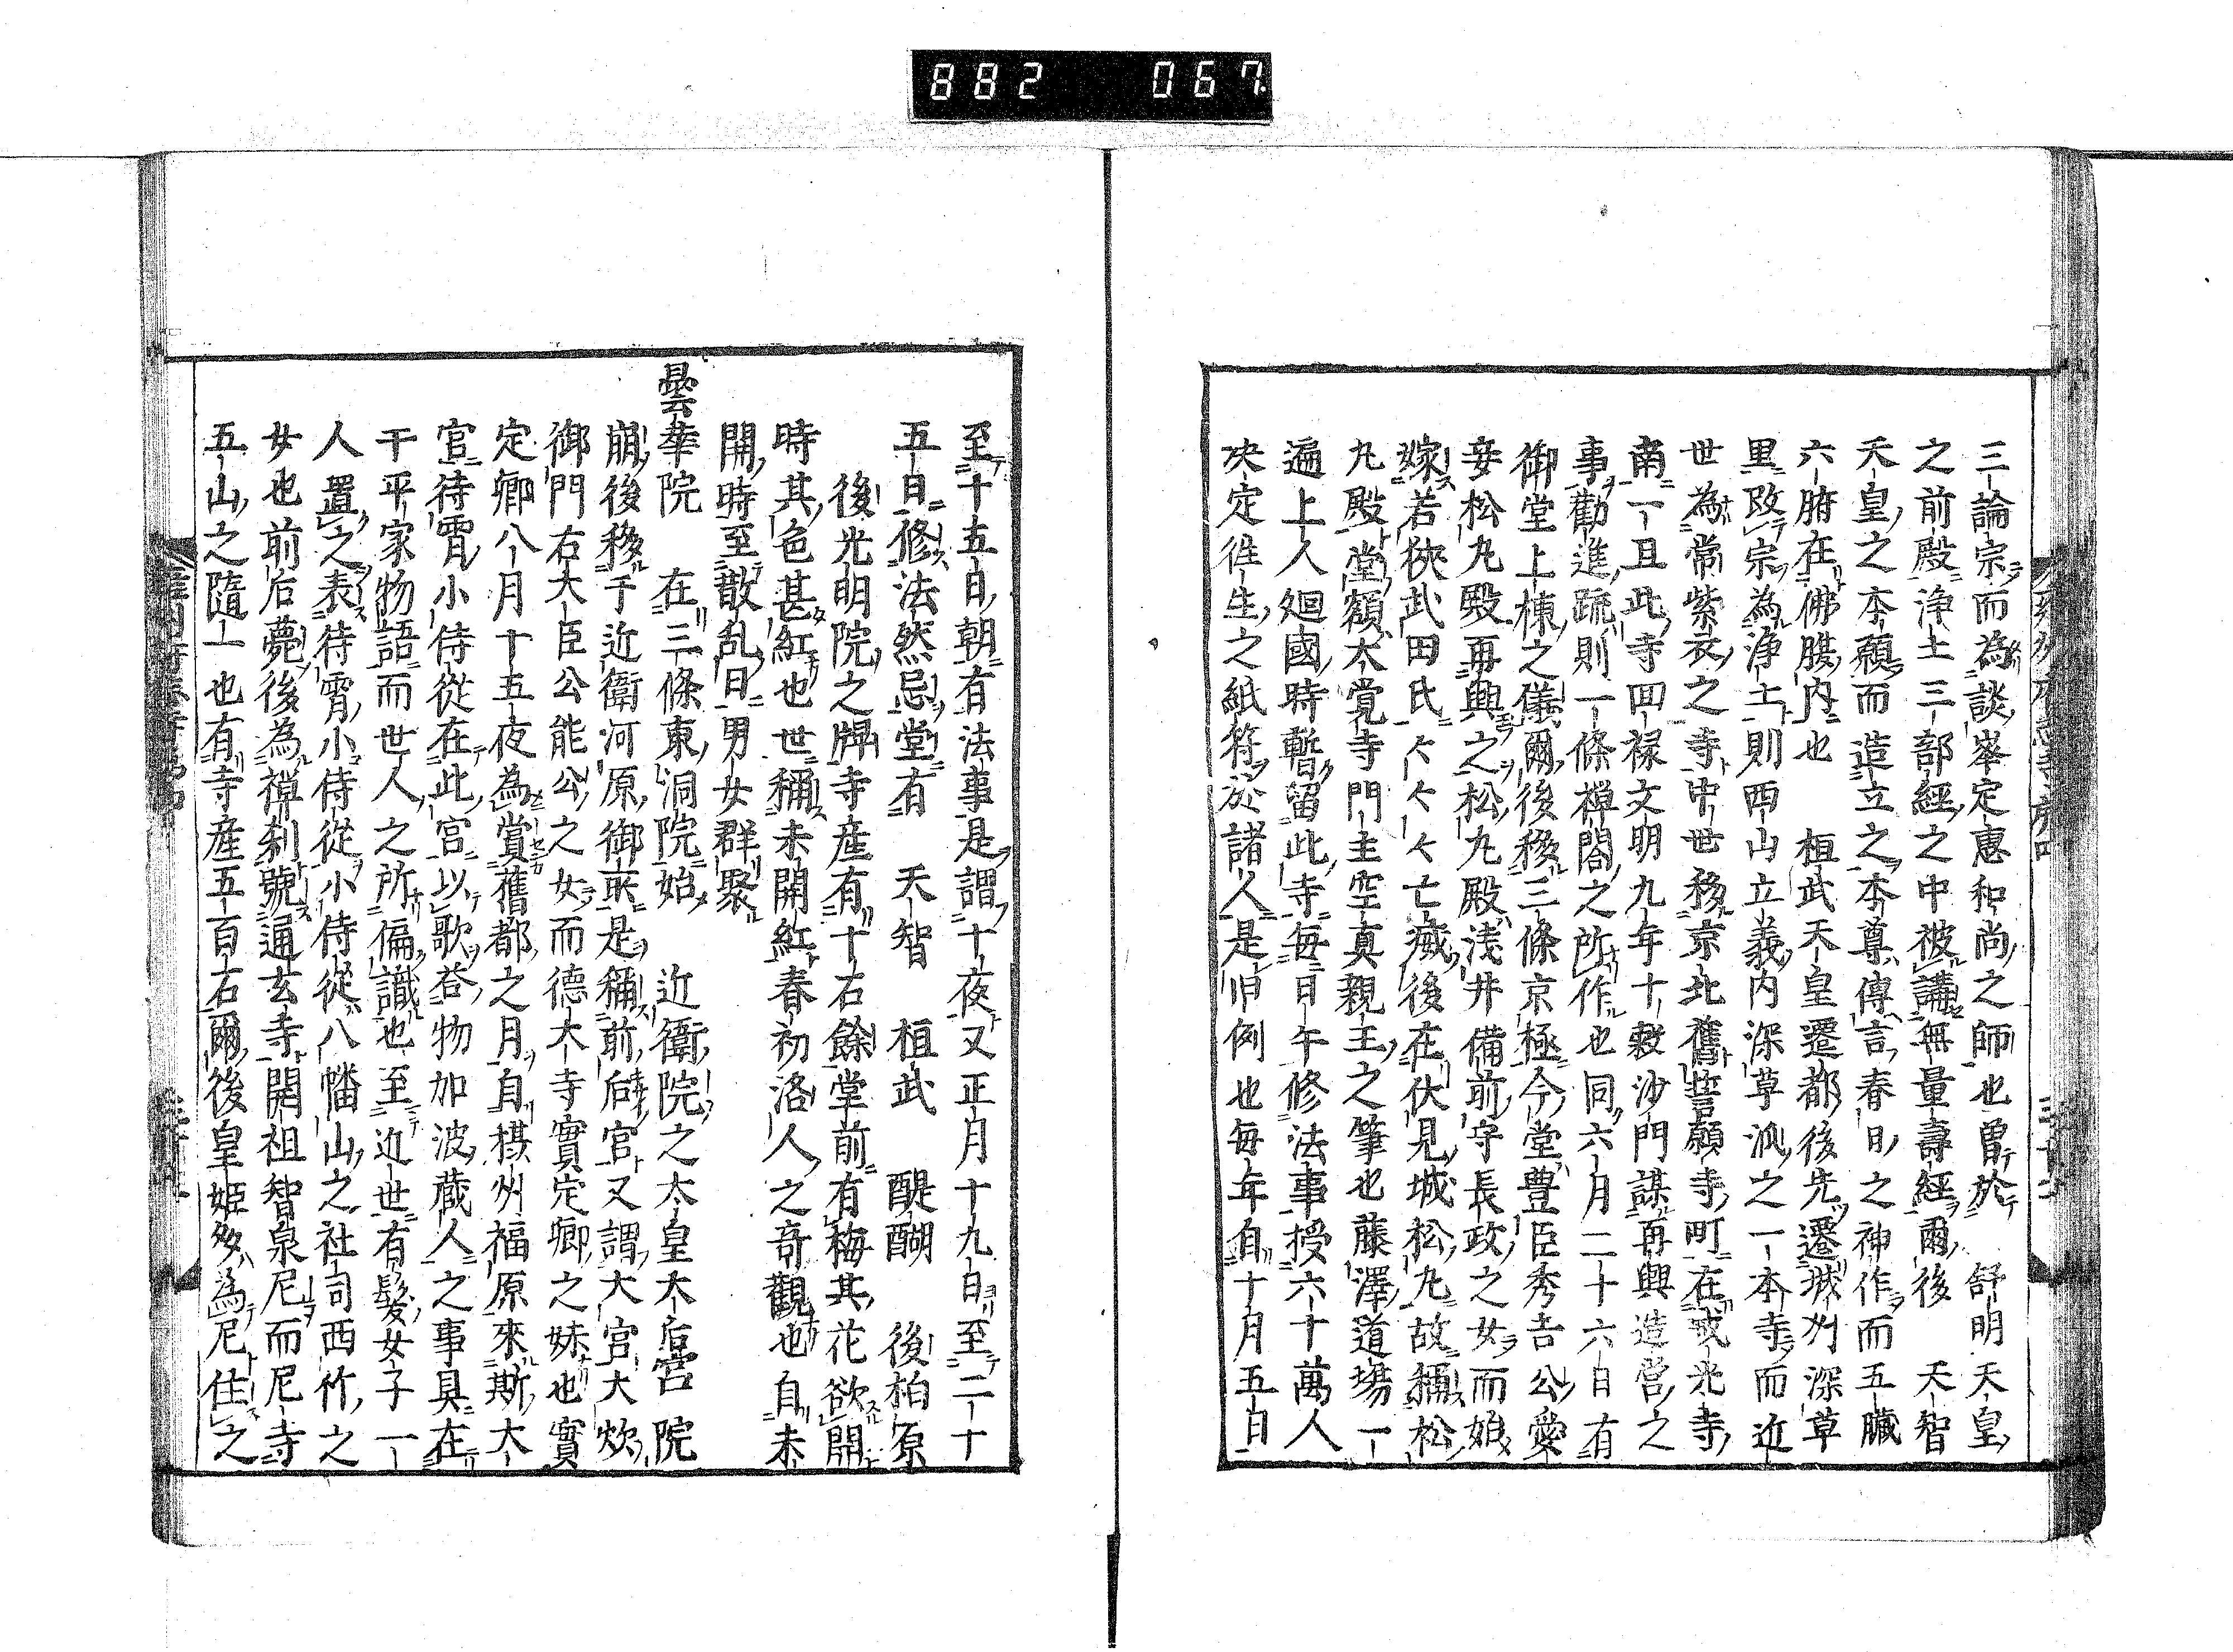 882 067
三論宗而為談峯定惠和尚之師也曽於 舒明天皇
之前殿浄土三部經之中被講無量壽經爾後 天智
天皇之本願而造立之本尊傳言春日之神作而五臓
六腑在佛腹内也 桓武天皇遷都後先遷城刕深草
里改宗為浄土則西山立義内深草派之一本寺而近
世為常紫衣之寺中世移京北舊誓願寺町在戒光寺
南一旦此寺回禄文明九年十穀沙門謀再興造営之
事勸進疏則一條禅閤之所作也同六月二十六日有
御堂上棟之儀爾後移三條京極今堂豊臣秀吉公愛
妾松丸殿再興之松丸殿浅井備前守長政之女而始
嫁若狹武田氏々々々亡滅後在伏見城松丸故稱松
丸殿堂額大覚寺門主空真親王之筆也藤澤道場一
遍上人廻國時暫留此寺毎日午修法事授六十萬人
决定徃生之紙符於諸人是旧例也毎年自十月五日
至十五日朝有法事是謂十夜又正月十九日至二十
五日修法然忌堂有 天智 桓武 醍醐 後柏原
後光明院之牌寺産有十石餘堂前有梅其花欲開
時其色甚紅也世稱未開紅春初洛人之奇觀也自未
開時至散乱日男女群聚
曇華院 在三條東洞院始 近衛院之太皇太后宮院
崩後移于近衛河原御所是稱前后宮又謂大宮大炊
御門右大臣公能公之女而德大寺實定卿之妹也實
定卿八月十五夜為賞舊都之月自摂州福原來斯大
宮待宵小侍從在此宮以歌荅物加波藏人之事具在
干平家物語而世人之所偏識也至近世有髪女子一
人置之表待宵小侍從小侍從八幡山之社司西竹之
女也前后薨後為禅刹號通玄寺開祖智泉尼而尼寺
五山之隨一也有寺産五百石爾後皇姫多為尼住之